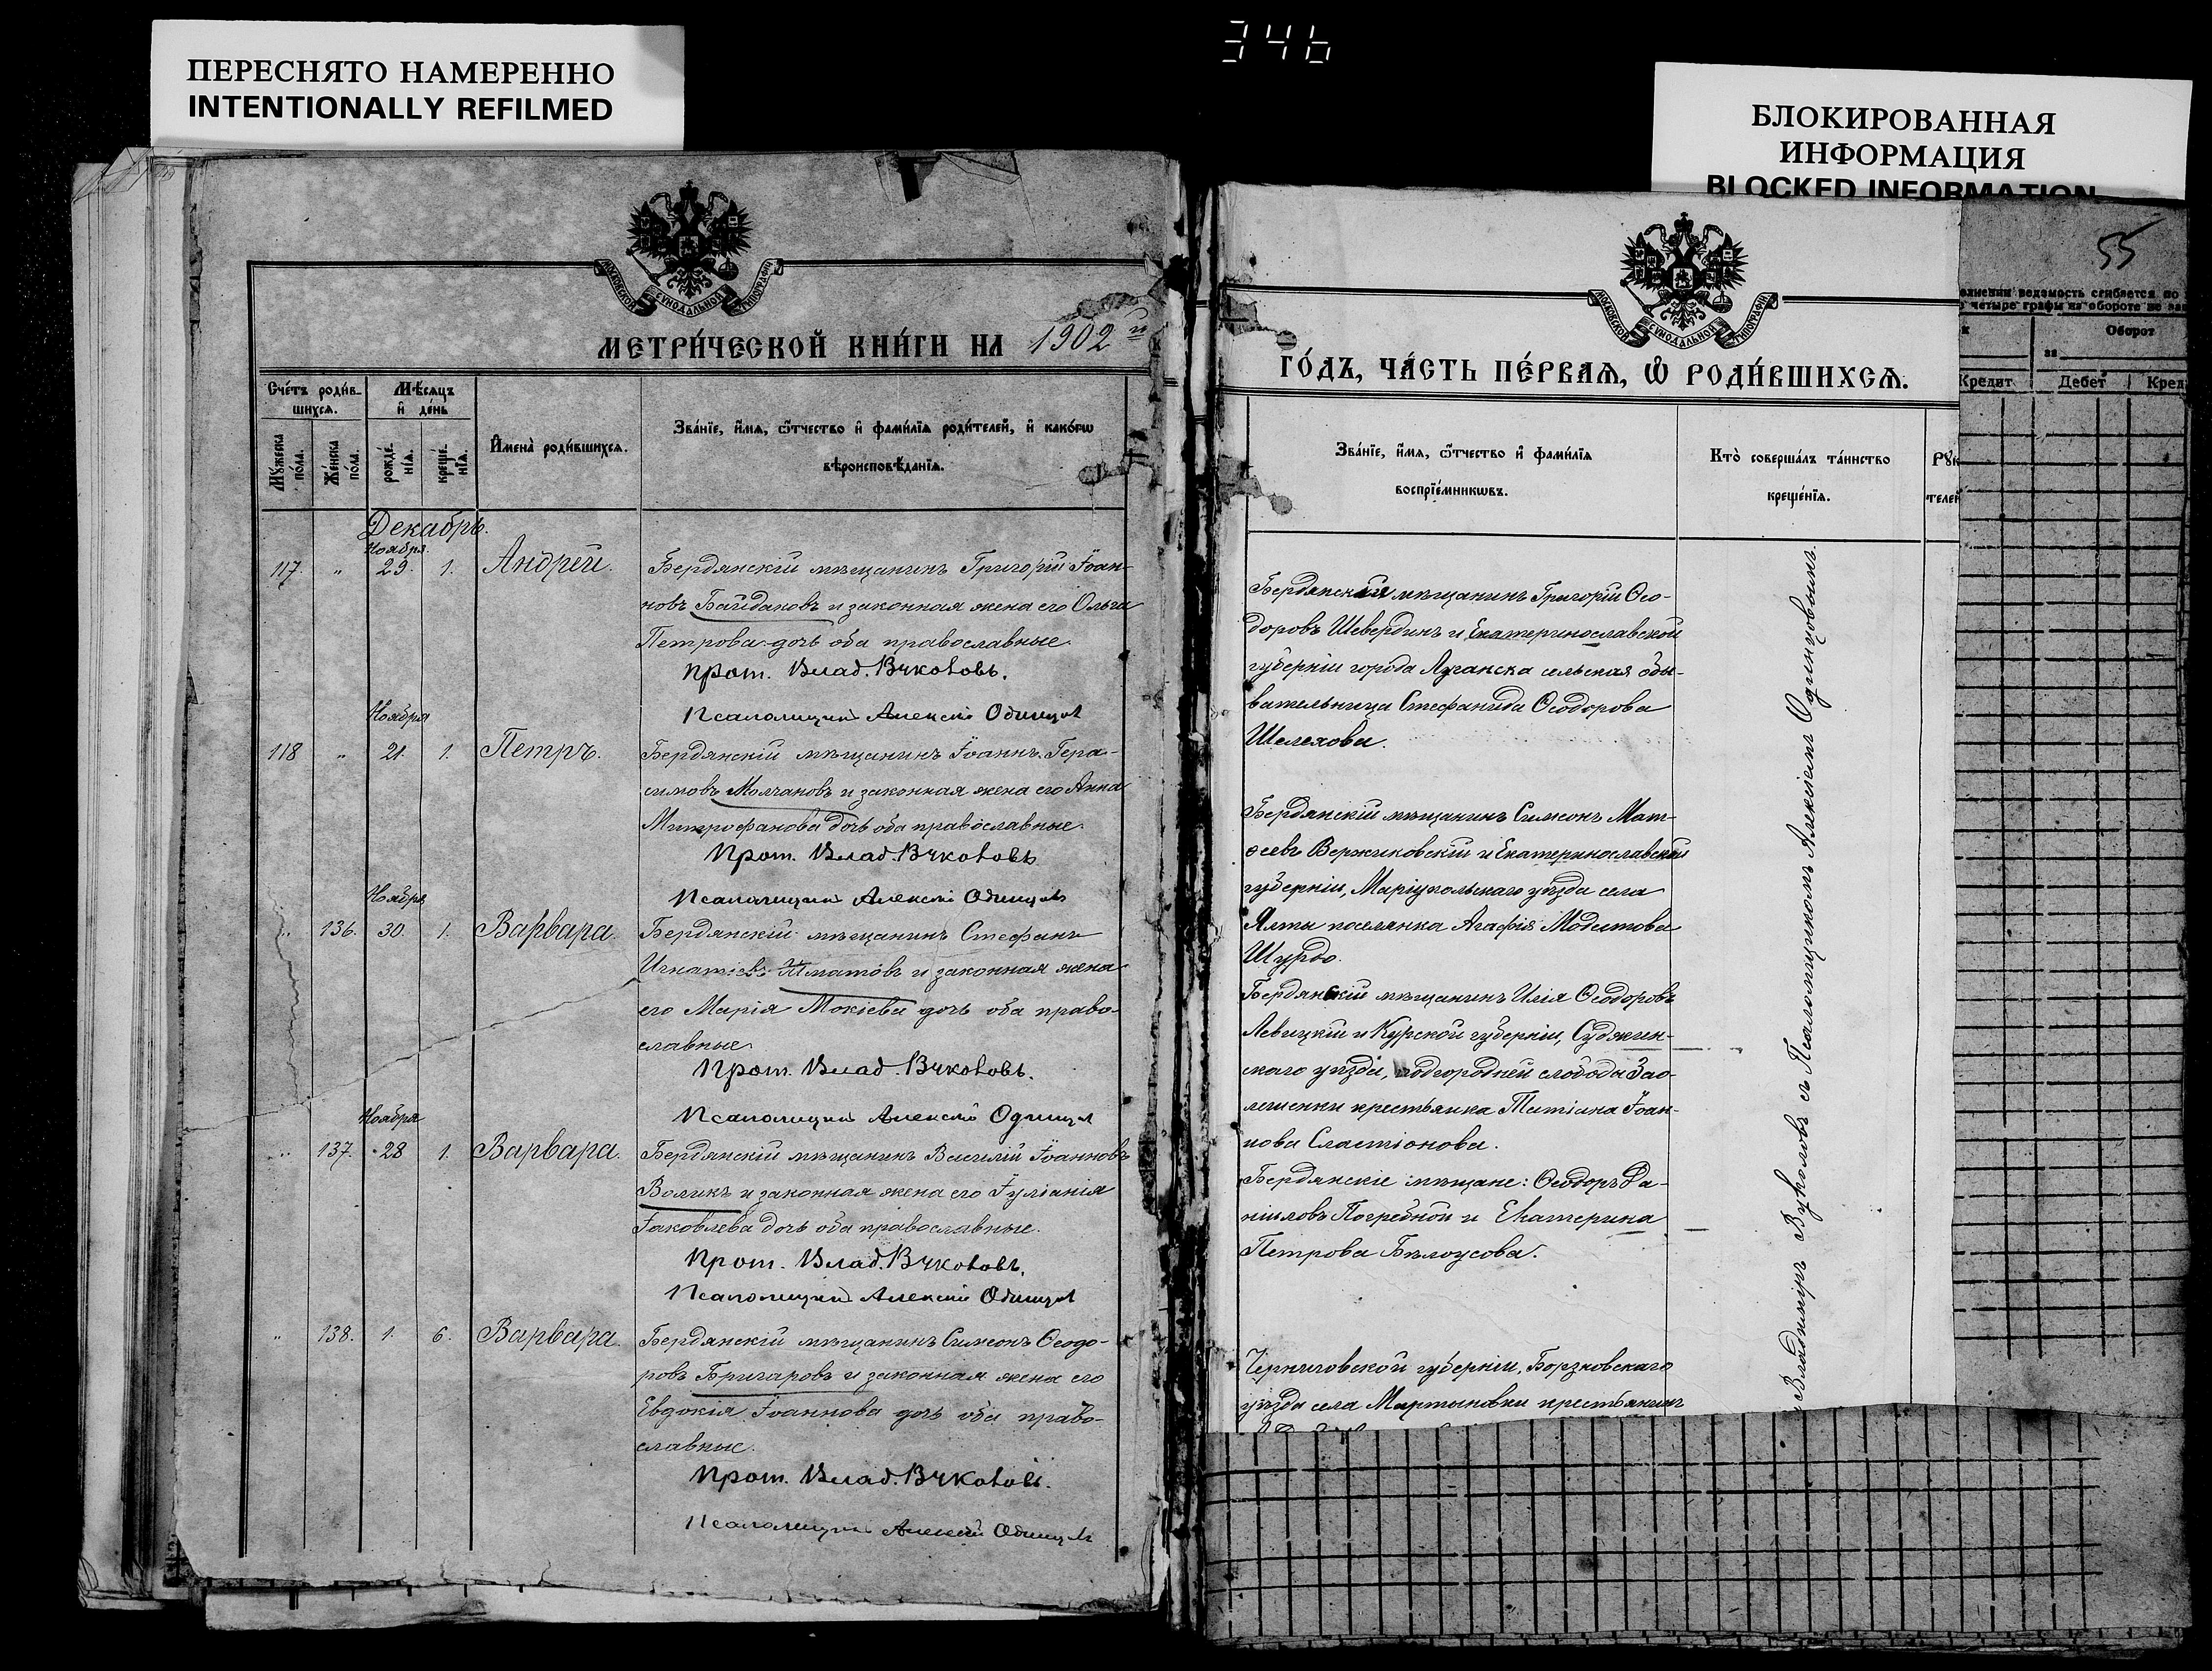 346
ПЕРЕСНЯТО НАМЕРЕННО
INTENTIONALLY REFILMED
БЛОКИРОВАННАЯ
ИНФОРМАЦИЯ
BLOCKED INFORMATION
МОСКОВСКОЙ СѴНОДАЛЬНОЙ ТИПОГРАФІИ
МЕТРИ́ЧЕСКОЙ КНИ́ГИ НА 1902й
Сче́тъ роди́в-
шихсѧ.
Мѣ́сяцъ
и҆ де́нь
Мꙋ́жеска
по́ла.
Же́нска
по́ла.
рожде́-
нїѧ.
креще́-
нїѧ.
И҆мена̀ роди́вшихсѧ.
Зва́нїе, и҆́мѧ, ѻ҆́тчество и҆ фами́лїѧ роди́телей, и҆ како́гѡ
вѣроисповѣ́данїѧ.
Декабрь.
Ноября
117. " 29. 1. Андрей. Бердянскій мѣщанинъ Григорій Іоан-
новъ Байдаковъ и законная жена его Ольга
Петрова дочь оба православные.
Прот. Влад. Вуколовъ.
Псаломщикъ Алексій Одинцов
Ноября
118 " 21. 1. Петръ. Бердянскій мѣщанинъ Іоаннъ Гера-
симовъ Молчановъ и законная жена его Анна
Митрофанова дочь оба православные.
Прот. Влад. Вуколовъ
Псаломщикъ Алексій Одинцов
Ноября
" 136. 30. 1. Варвара. Бердянскій мѣщанинъ Стефанъ
Игнатіевъ Шматовъ и законная жена
его Марія Мокіева дочь оба право-
славные.
Прот. Влад. Вуколовъ.
Псаломщикъ Алексій Одинцов
Ноября
" 137. 28 1. Варвара. Бердянскій мѣщанинъ Василій Іоанновъ
Воликъ и законная жена его Іуліанія
Іаковлева дочь оба православные.
Прот. Влад. Вуколовъ.
Псаломщикъ Алексій Одинцов
" 138. 1. 6. Варвара. Бердянскій мѣщанинъ Симеонъ Ѳеодо-
ровъ Бригаровъ и законная жена его
Евдокія Іоаннова дочь оба право-
славные.
Прот. Влад. Вуколовъ.
Псаломщикъ Алексій Одинцов
МОСКОВСКОЙ СѴНОДАЛЬНОЙ ТИПОГРАФІИ
ГО́ДЪ, ЧА́СТЬ ПЕ́РВАѦ, Ѡ҆ РОДИ́ВШИХСѦ.
Зва́нїе, и҆́мѧ, ѻ҆́тчество и҆ фами́лїѧ
воспрїе́мникѡвъ.
Кто̀ соверша́лъ та́инство
креще́нїѧ.
Рꙋк
телей
Бердянскій мѣщанинъ Григорій Ѳео-
доровъ Шевердинъ и Екатеринославской
губерніи города Луганска сельская обы-
вательница Стефанида Ѳеодорова
Шелехова.
Бердянскій мѣщанинъ Симеонъ Мат-
ѳеевъ Вержиковскій и Екатеринославской
губерніи, Маріупольскаго уѣзда села
Ялты поселянка Агафія Модестова
Шурдо.
Бердянскій мѣщанинъ Илія Ѳеодоровъ
Левицкій и Курской губерніи, Суджин-
скаго уѣзда, подгородней слободы Зао-
лешенки крестьянка Татіана Іоан-
нова Сластіонова.
Бердянскіе мѣщане: Ѳеодоръ Да-
ніиловъ Погребной и Екатерина
Петрова Бѣлоусова.
Черниговской губерніи, Борзновскаго
уѣзда села Мартыновки крестьянинъ
Владиміръ Вуколовъ съ Псаломщикомъ Алексіемъ Одинцовымъ.
55
ведомость сгибается по
четыре графы на обороте не
Оборот
за
Кредит
Дебет
Кред